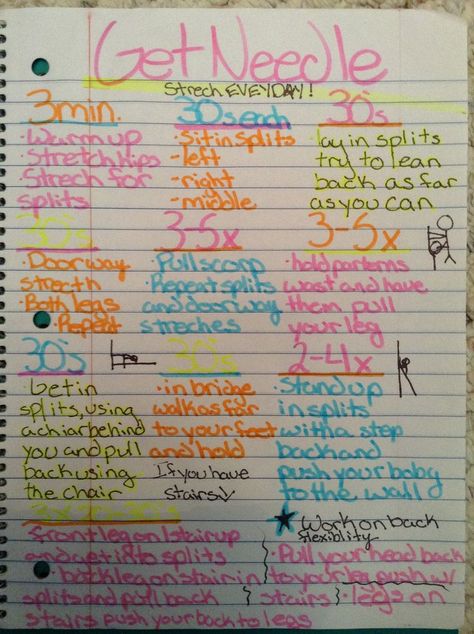 Get Needle
Strech EVERYDAY!
3 min.
·Warm up
·Stretch hips
·Strech for
splits
30s each
·Sit in splits
-left
-right
-middle
30s
lay in splits
try to lean
back as far
as you can
30s
·Doorway
strecth
·Both legs
·Repeat
3-5x
·Pull scorp
·Repeat splits
and doorway
streches
3-5x
·hold parterns
wast and have
them pull
your leg
30s
·Get in
splits, using
a chiar behind
you and pull
back using
the chair
30s
·in bridge
walk as far
to your feet
and hold
If you have
stairs
2-4x
·Stand up
in splits
with a step
back and
push your baby
to the wall
front leg on 1 stair up
and get into splits
·back leg on stair in
splits and pull back
Work on back
flexiblity
·Pull your head back
to your leg push w/
stairs ·legs on
stairs push your back to legs